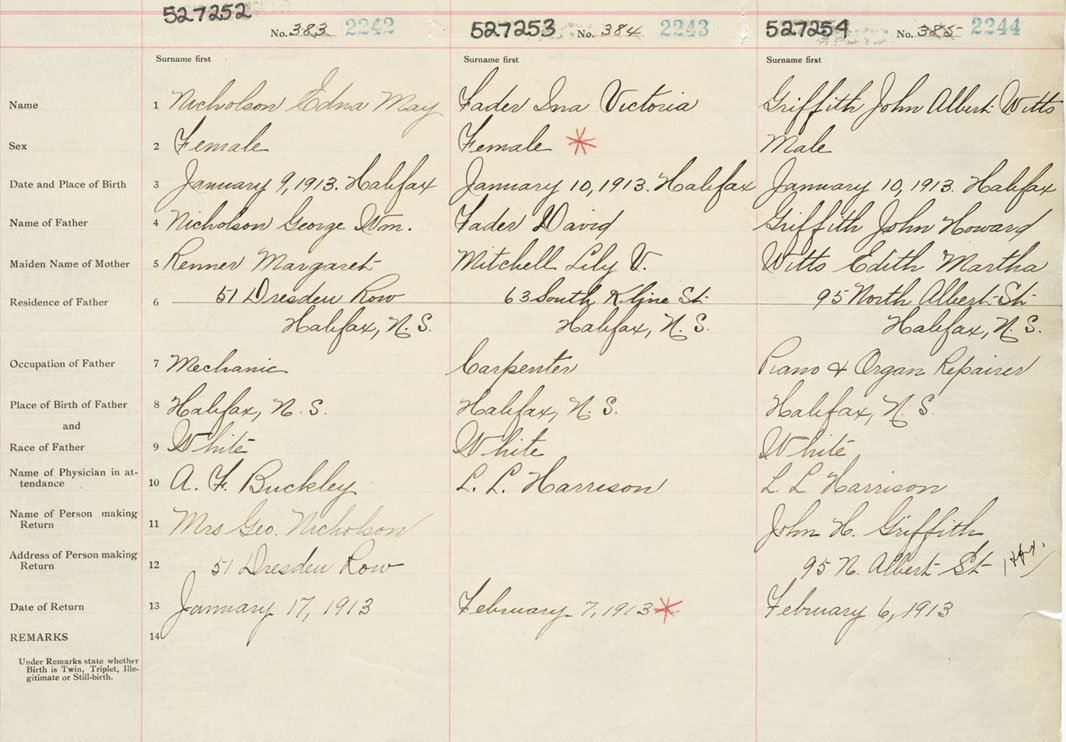 527252 No. 383 2242 527253 No. 384 2243 527254 No. 385 2244
Surname first Surname first Surname first
Name 1 Nicholson Edna May Fader Ina Victoria Griffith John Albert Witts
Sex 2 Female Female * Male
Date and Place of Birth 3 January 9, 1913. Halifax January 10, 1913. Halifax January 10, 1913. Halifax
Name of Father 4 Nicholson George Wm. Fader David Griffith John Howard
Maiden Name of Mother 5 Renner Margaret Mitchell Lily V. Witts Edith Martha
Residence of Father 6 51 Dresden Row 63 South Kline St. 95 North Albert St.
Halifax, N. S. Halifax, N. S. Halifax, N. S.
Occupation of Father 7 Mechanic Carpenter Piano & Organ Repairer
Place of Birth of Father 8 Halifax, N. S. Halifax, N. S. Halifax, N. S.
and
Race of Father 9 White White White
Name of Physician in at-
tendance 10 A. F. Buckley L. L. Harrison L L Harrison
Name of Person making
Return 11 Mrs Geo. Nicholson John H. Griffith
Address of Person making
Return 12 51 Dresden Row 95 N. Albert St Hfx.
Date of Return 13 January 17, 1913 February 7, 1913 * February 6, 1913
REMARKS 14
Under Remarks state whether
Birth is Twin, Triplet, Ille-
gitimate or Still-birth.